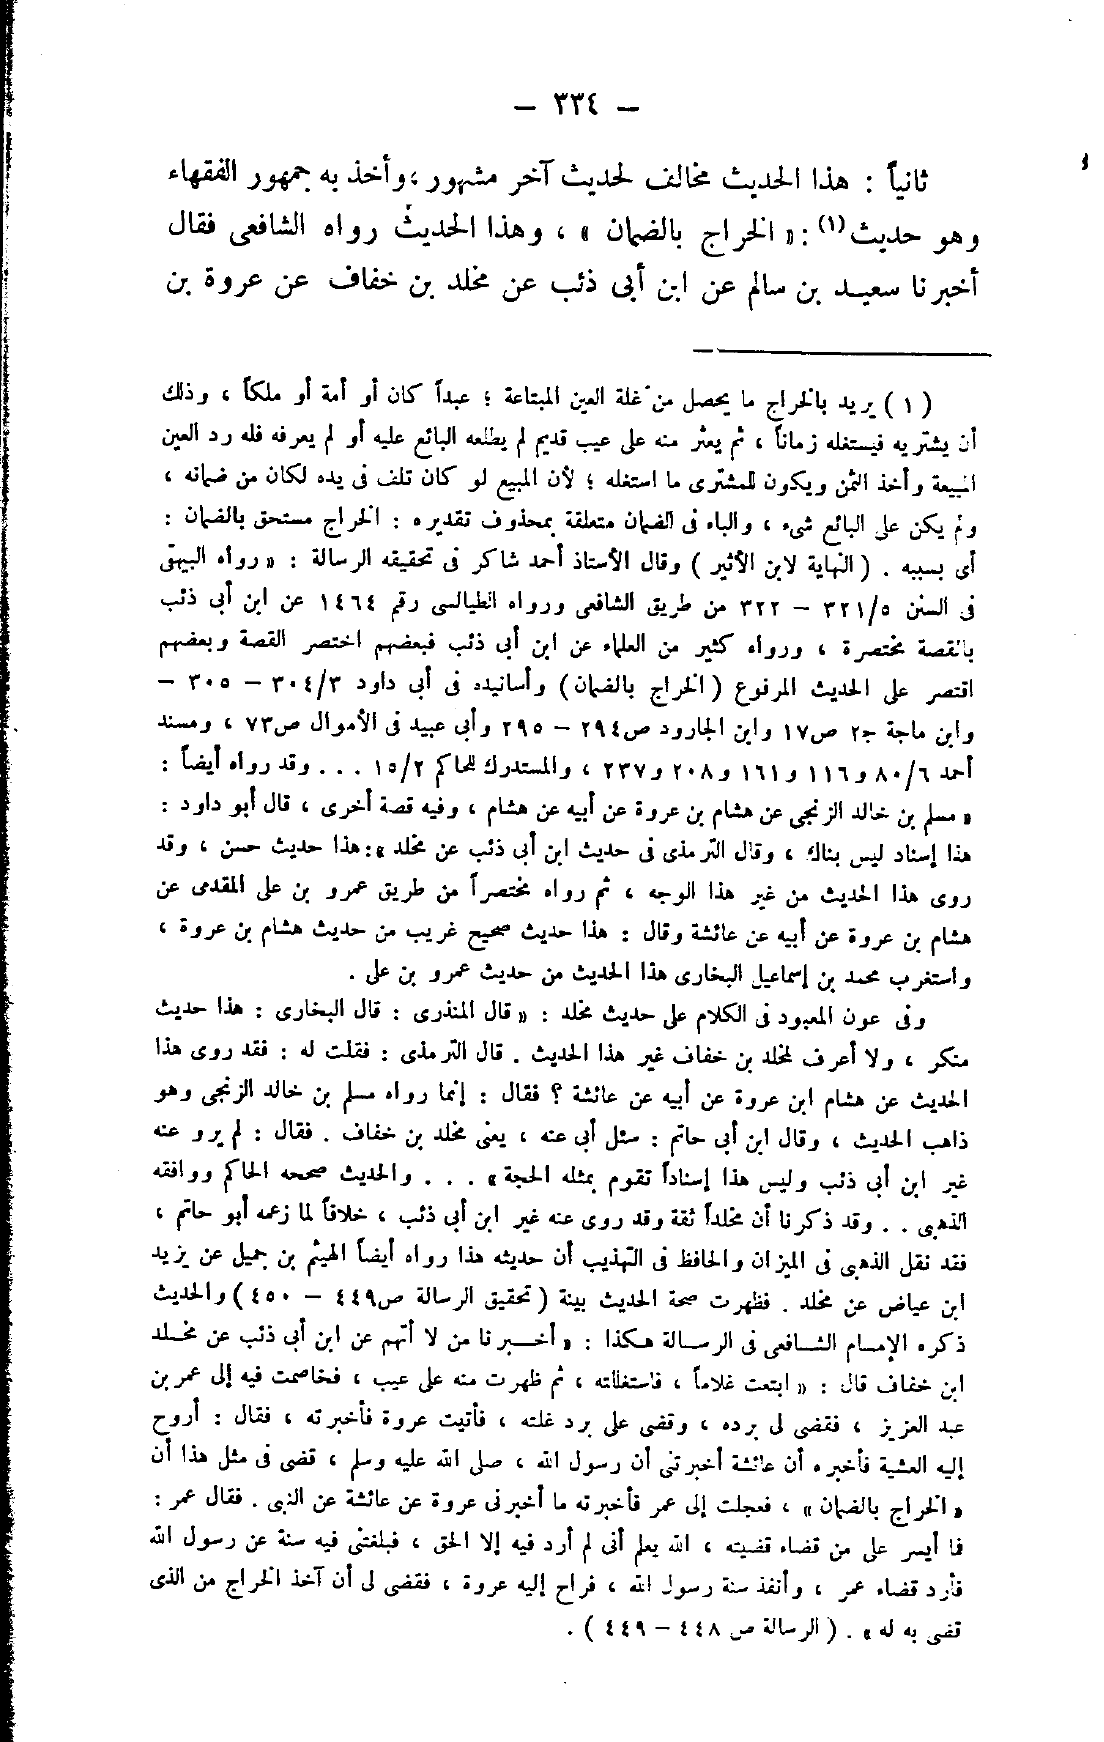 — ٣٣٤ —
ثانياً : هذا الحديث مخالف لحديث آخر مشهور ، وأخذ به جمهور الفقهاء
وهو حديث (١) : « الخراج بالضمان » ، وهذا الحديث رواه الشافعى فقال
أخبرنا سعيد بن سالم عن ابن أبى ذئب عن مخلد بن خفاف عن عروة بن
( ١ ) يريد بالخراج ما يحصل من غلة العين المبتاعة ؛ عبداً كان أو أمة أو ملكاً ، وذلك
أن يشتريه فيستغله زماناً ، ثم يعثر منه على عيب قديم لم يطلعه البائع عليه أو لم يعرفه فله رد العين
المبيعة وأخذ الثمن ويكون للمشترى ما استغله ؛ لأن المبيع لو كان تلف فى يده لكان من ضمانه ،
ولم يكن على البائع شىء ، والباء فى الضمان متعلقة بمحذوف تقديره : الخراج مستحق بالضمان :
أى بسببه . ( النهاية لابن الأثير ) وقال الأستاذ أحمد شاكر فى تحقيقه الرسالة : « رواه البيهقى
فى السنن ٣٢١/٥ — ٣٢٢ من طريق الشافعى ورواه الطيالسى رقم ١٤٦٤ عن ابن أبى ذئب
بالقصة مختصرة ، ورواه كثير من العلماء عن ابن أبى ذئب فبعضهم اختصر القصة وبعضهم
اقتصر على الحديث المرفوع ( الخراج بالضمان ) وأسانيده فى أبى داود ٣٠٤/٣ — ٣٠٥ —
وابن ماجة ج٢ ص١٧ وابن الجارود ص٢٩٤ — ٢٩٥ وأبى عبيد فى الأموال ص٧٣ ، ومسند
أحمد ٨٠/٦ و١١٦ و١٦١ و٢٠٨ و٢٣٧ ، والمستدرك للحاكم ١٥/٢ ... وقد رواه أيضاً :
« مسلم بن خالد الزنجى عن هشام بن عروة عن أبيه عن هشام ، وفيه قصة أخرى ، قال أبو داود :
هذا إسناد ليس بذاك ، وقال الترمذى فى حديث ابن أبى ذئب عن مخلد » : هذا حديث حسن ، وقد
روى هذا الحديث من غير هذا الوجه ، ثم رواه مختصراً من طريق عمرو بن على المقدمى عن
هشام بن عروة عن أبيه عن عائشة وقال : هذا حديث صحيح غريب من حديث هشام بن عروة ،
واستغرب محمد بن إسماعيل البخارى هذا الحديث من حديث عمرو بن على .
وفى عون المعبود فى الكلام على حديث مخلد : « قال المنذرى : قال البخارى : هذا حديث
منكر ، ولا أعرف لمخلد بن خفاف غير هذا الحديث . قال الترمذى : فقلت له : فقد روى هذا
الحديث عن هشام ابن عروة عن أبيه عن عائشة ؟ فقال : إنما رواه مسلم بن خالد الزنجى وهو
ذاهب الحديث ، وقال ابن أبى حاتم : سئل أبى عنه ، يعنى مخلد بن خفاف . فقال : لم يرو عنه
غير ابن أبى ذئب وليس هذا إسناداً تقوم بمثله الحجة » ... والحديث صححه الحاكم ووافقه
الذهبى .. وقد ذكرنا أن مخلداً ثقة وقد روى عنه غير ابن أبى ذئب ، خلافاً لما زعمه أبو حاتم ،
فقد نقل الذهبى فى الميزان والحافظ فى التهذيب أن حديثه هذا رواه أيضاً الهيثم بن جميل عن يزيد
ابن عياض عن مخلد . فظهرت صحة الحديث بينة ( تحقيق الرسالة ص٤٤٩ — ٤٥٠ ) والحديث
ذكره الإمام الشافعى فى الرسالة هكذا : « أخبرنا من لا أتهم عن ابن أبى ذئب عن مخلد
ابن خفاف قال : « ابتعت غلاماً ، فاستغللته ، ثم ظهرت منه على عيب ، فخاصمت فيه إلى عمر بن
عبد العزيز ، فقضى لى برده ، وقضى على برد غلته ، فأتيت عروة فأخبرته ، فقال : أروح
إليه العشية فأخبره أن عائشة أخبرتنى أن رسول الله ، صلى الله عليه وسلم ، قضى فى مثل هذا أن
« الخراج بالضمان » ، فعجلت إلى عمر فأخبرته ما أخبرنى عروة عن عائشة عن النبى . فقال عمر :
فما أيسر على من قضاء قضيته ، الله يعلم أنى لم أرد فيه إلا الحق ، فبلغتنى فيه سنة عن رسول الله
فأرد قضاء عمر ، وأنفذ سنة رسول الله ، فراح إليه عروة ، فقضى لى أن آخذ الخراج من الذى
قضى به له » . ( الرسالة ص ٤٤٨ — ٤٤٩ ) .